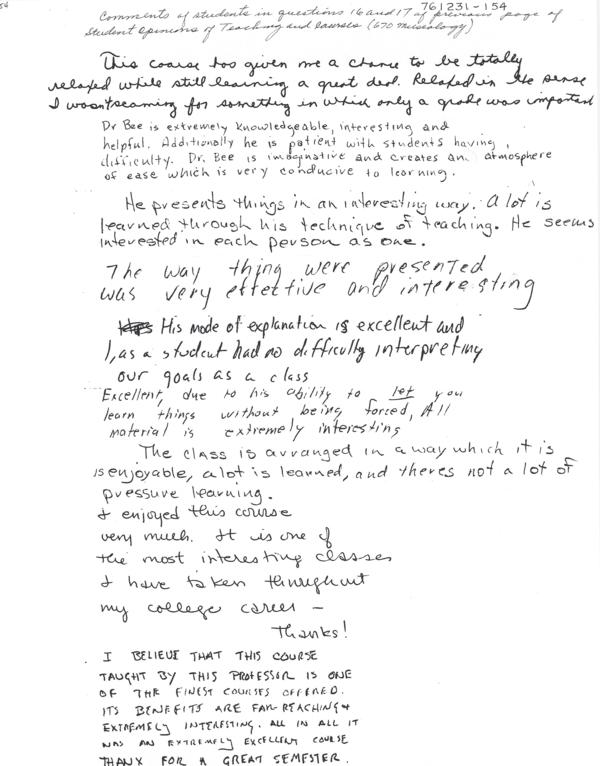 54
761231-154
Comments of students in questions 16 and 17 of previous page of
Student Opinions of Teaching and Courses (670 Museology)
This coarse has given me a chance to be totally
relaxed while still learning a great deal. Relaxed in the sense
I wasn't seaming for something in which only a grade was important
Dr Bee is extremely knowledgeable, interesting and
helpful. Additionally he is patient with students having
difficulty. Dr. Bee is imaginative and creates an atmosphere
of ease which is very conducive to learning.
He presents things in an interesting way. A lot is
learned through his technique of teaching. He seems
interested in each person as one.
The way thing were presented
was very effective and interesting
His mode of explanation is excellent and
I, as a student had no difficulty interpreting
our goals as a class
Excellent, due to his ability to let you
learn things without being forced, All
material is extremely interesting
The class is arranged in a way which it is
is enjoyable, a lot is learned, and theres not a lot of
pressure learning.
I enjoyed this course
very much. It is one of
the most interesting classes
I have taken throughout
my college career —
Thanks!
I BELIEVE THAT THIS COURSE
TAUGHT BY THIS PROFESSOR IS ONE
OF THE FINEST COURSES OFFERED.
ITS BENEFITS ARE FAR REACHING &
EXTREMELY INTERESTING. ALL IN ALL IT
WAS AN EXTREMELY EXCELLENT COURSE
THANX FOR A GREAT SEMESTER.